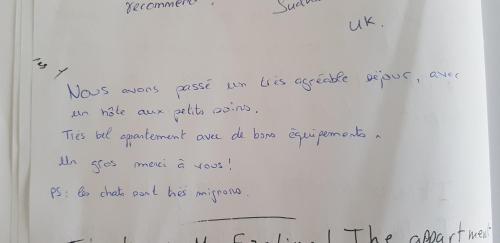 recommend.
UK.
Nous avons passé un très agréable séjour, avec
un hôte aux petits soins.
Très bel appartement avec de bons équipements.
Un gros merci à vous !
PS : les chats sont très mignons.
! The appartment